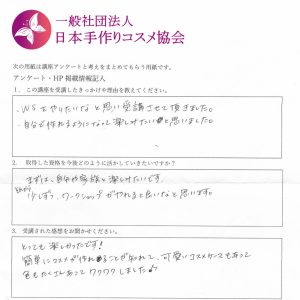 一般社団法人
日本手作りコスメ協会
次の用紙は講座アンケートと考えをまとめてもらう用紙です。
アンケート・HP 掲載情報記入
1. この講座を受講したきっかけや理由を教えてください。
・WSをやりたいなと思い受講させて頂きました。
・自分で作れるようになって楽しみたいと思いました。
2. 取得した資格を今後どのように活かしていきたいですか?
まずは、自分や家族と楽しみたいです。
少しずつ、ワークショップがやれると良いなと思います。
3. 受講された感想をお聞かせください。
とっても楽しかったです!
簡単にコスメが作れることが知れて、可愛いコスメケースもあって
色もたくさんあってワクワクしました♪